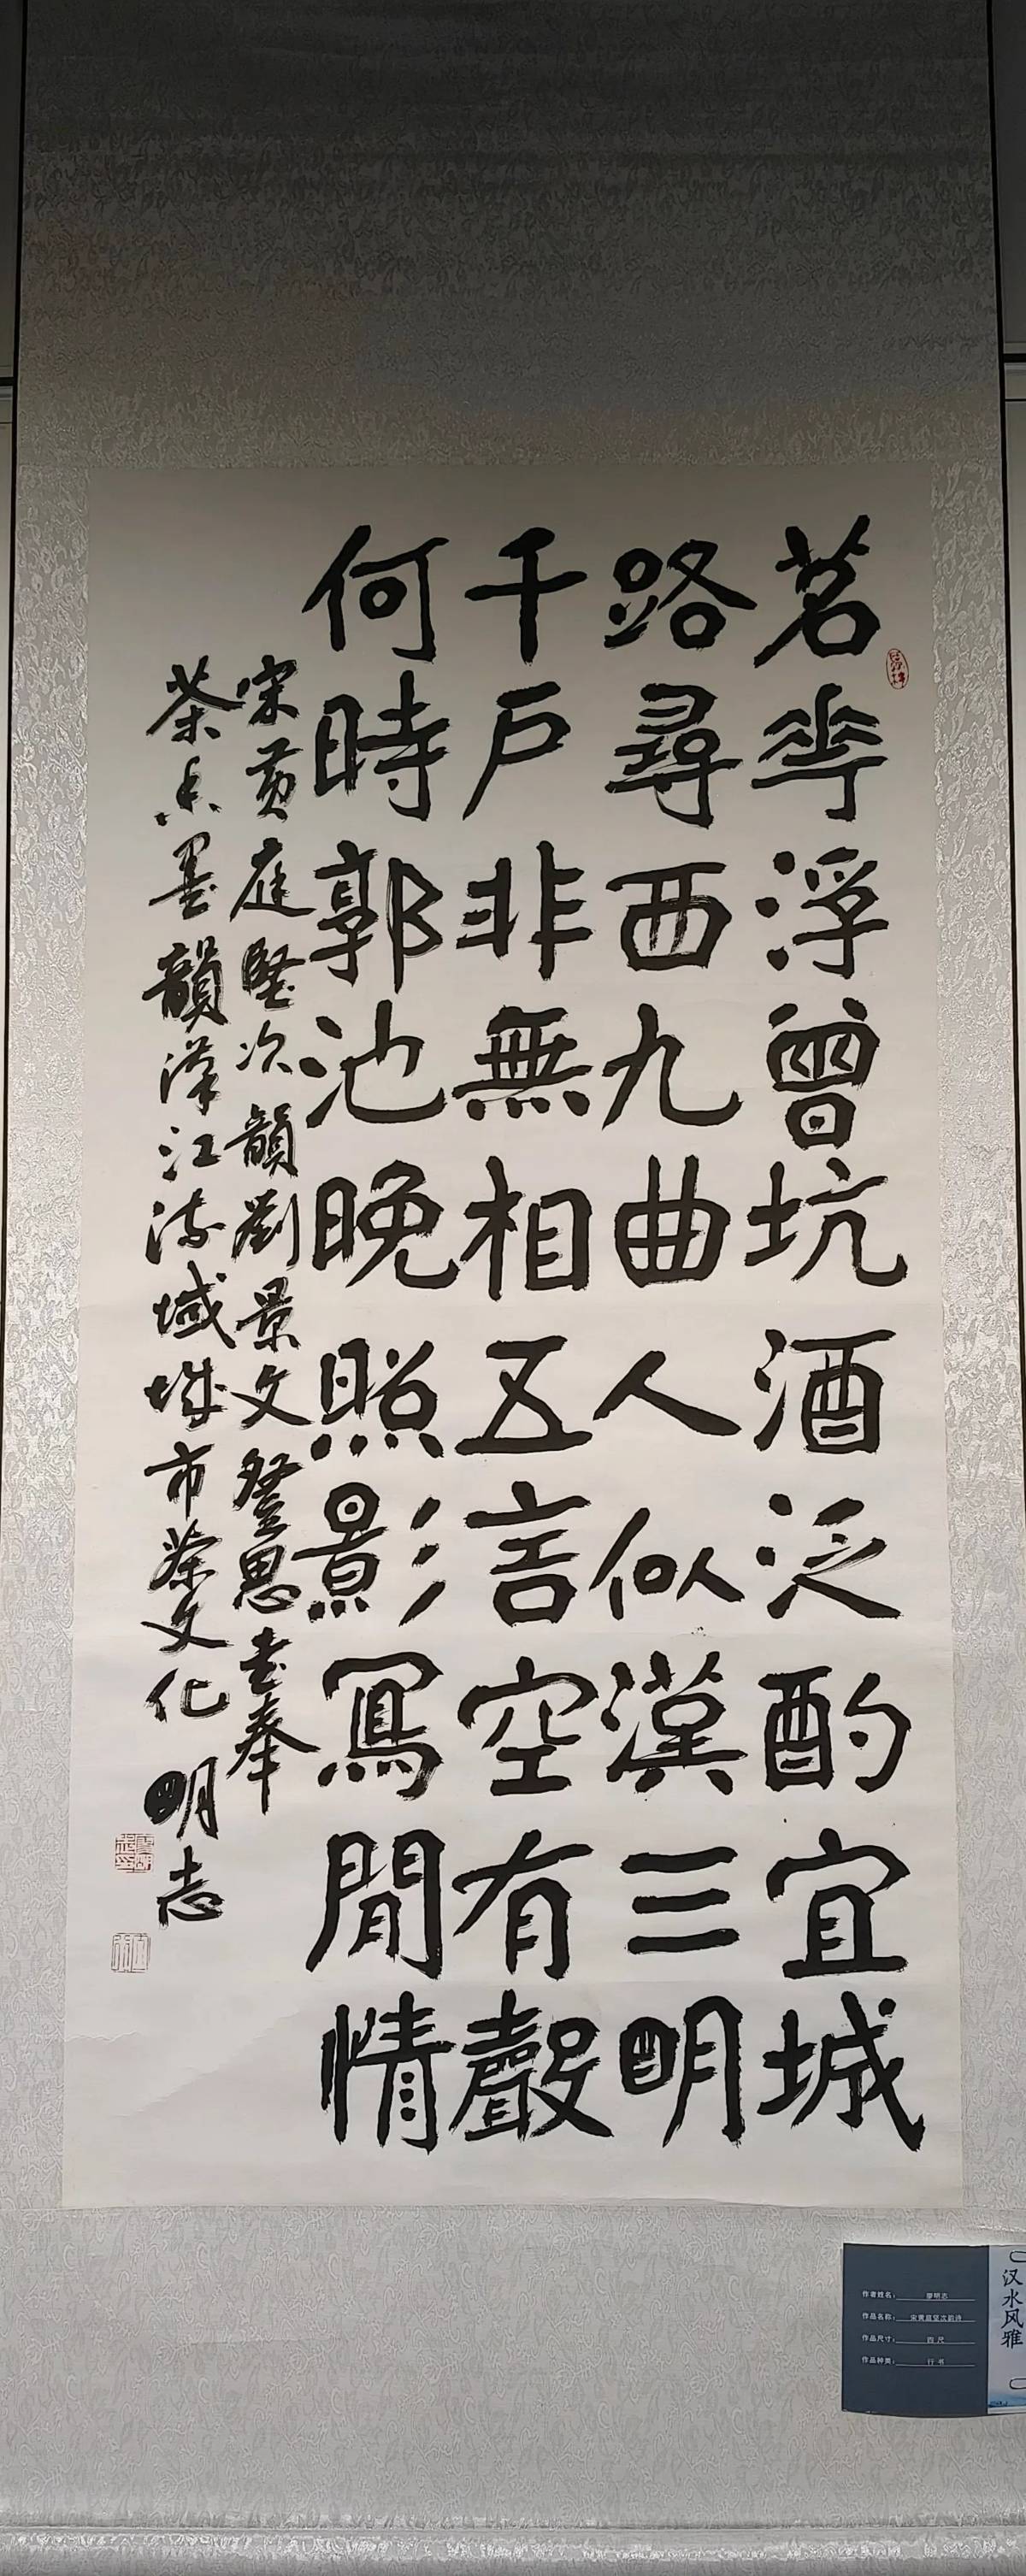 茗花浮曾坑酒泛酌宜城
路尋西九曲人似漢三明
千戶非無相五言空有聲
何時郭池晚照影寫閒情
宋黃庭堅次韻劉景文登思書奉
茶香墨韻漢江流域城市茶文化 明志
汉水风雅
作者姓名：廖明志
作品名称：宋黄庭坚次韵诗
作品尺寸：四尺
作品种类：行书